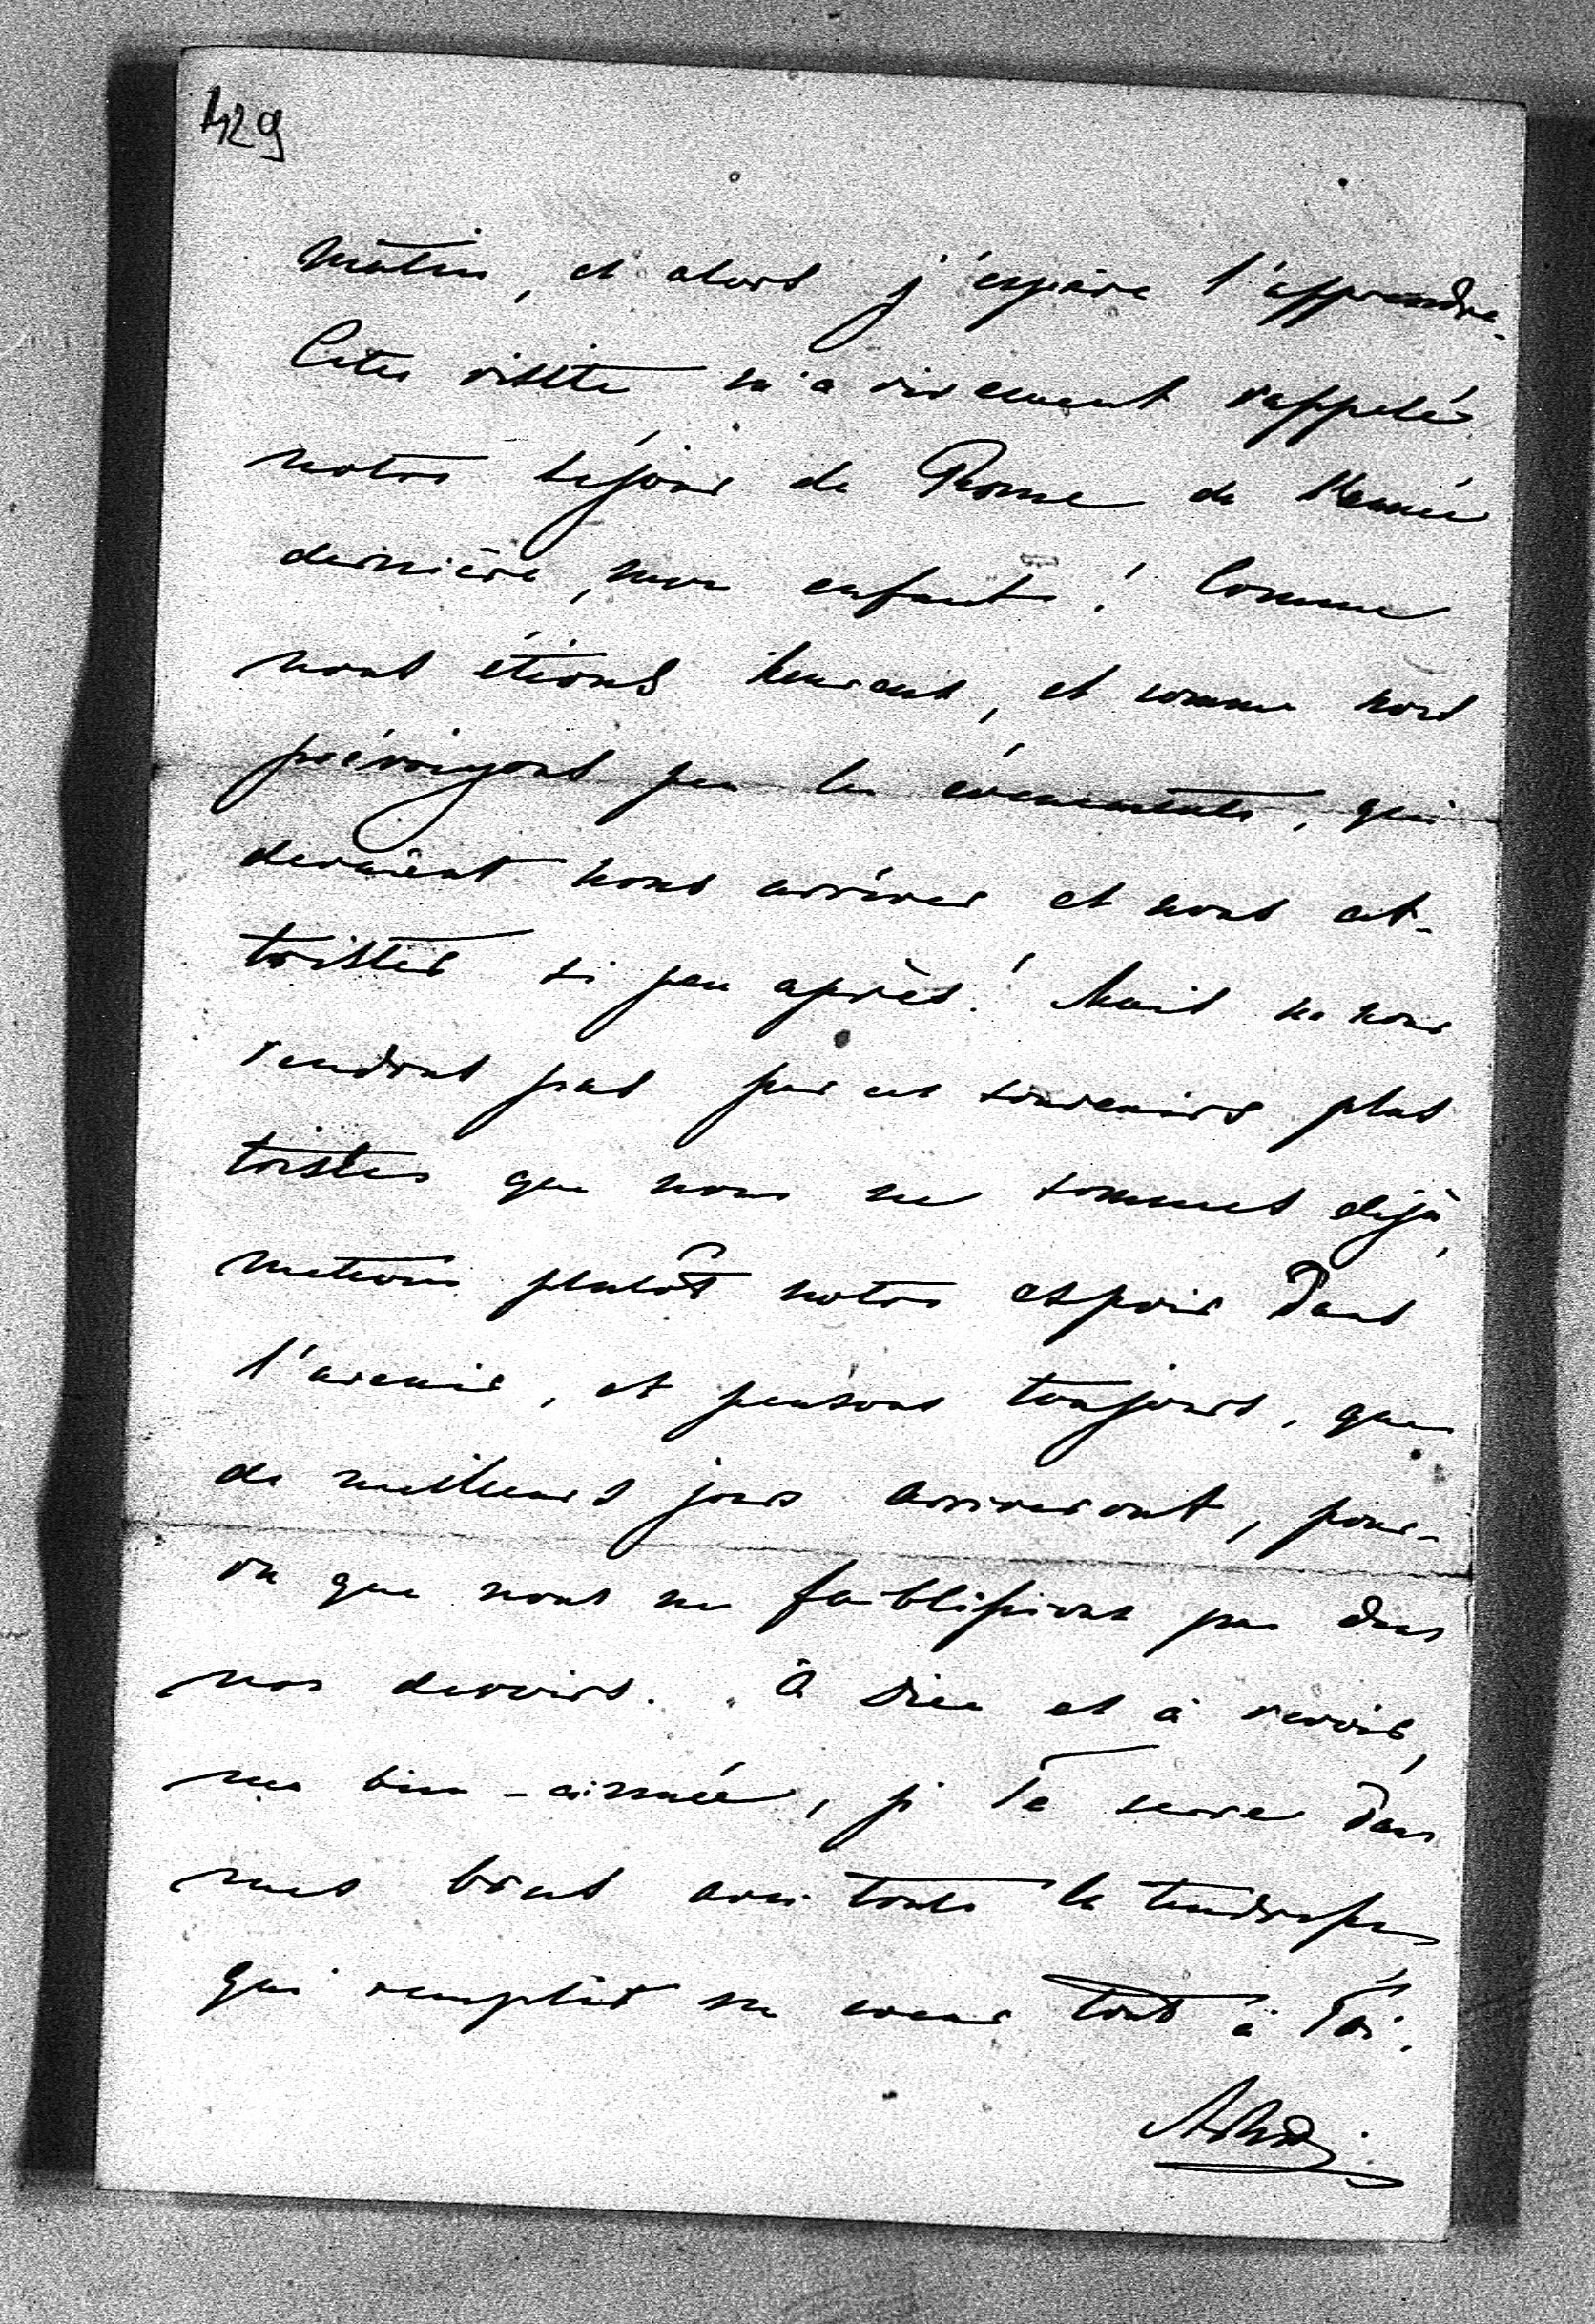 429
matin, et alors j'espère l'apprendre.
Cette visite m'a vivement rappelé
notre séjour de Rome de l'année
dernière, mon enfant! Comme
nous étions heureux, et comme nous
prévoiyons peu les évenements, qui
devaient nous arriver et nous at-
trister si peu après! Mais ne nous
rendons pas par ces souvenirs plus
tristes que nous ne sommes dejà,
mettons plutôt notre espoir dans
l'avenir, et pensons toujours, que
de meilleurs jours arriveront, pour-
vu que nous ne faiblissions pas dans
nos devoirs. à Dieu et à revoir,
ma bien-aimée, je Te serre dans
mes bras avec toute la tendresse
qui remplit ce coeur tout à Toi.